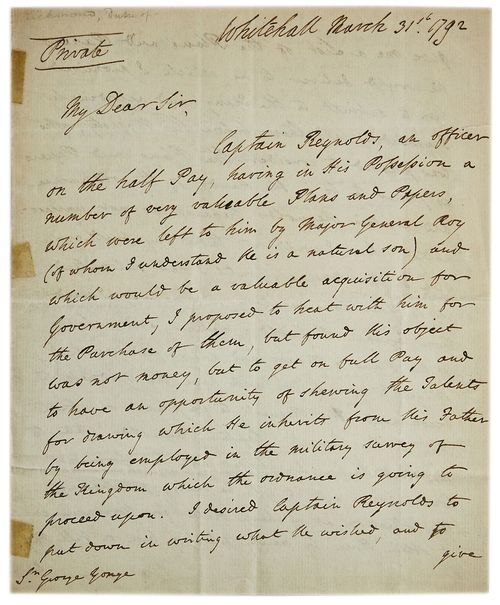 Whitehall March 31st. 1792
Private
My Dear Sir,
Captain Reynolds, an officer
on the half Pay, having in His Possession a
number of very valuable Plans and Papers,
which were left to him by Major General Roy
(of whom I understand He is a natural son) and
which would be a valuable acquisition for
Government, I proposed to treat with him for
the Purchase of them, but found His object
was not money, but to get on full Pay and
to have an opportunity of shewing the Talents
for drawing which He inherits from His Father
by being employed in the military survey of
the Kingdom which the ordnance is going to
proceed upon. I desired Captain Reynolds to
put down in writing what He wished, and to
give
Sr. George Yonge